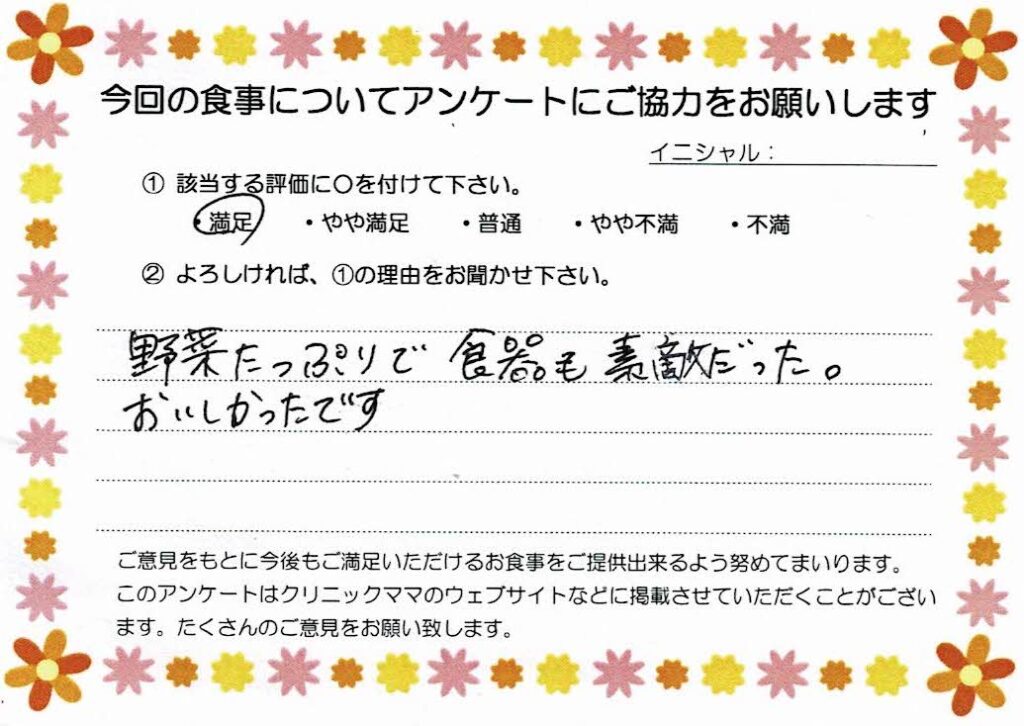 今回の食事についてアンケートにご協力をお願いします
イニシャル：
① 該当する評価に〇を付けて下さい。
・満足 ・やや満足 ・普通 ・やや不満 ・不満
② よろしければ、①の理由をお聞かせ下さい。
野菜たっぷりで 食器も 素敵だった。
おいしかったです
ご意見をもとに今後もご満足いただけるお食事をご提供出来るよう努めてまいります。
このアンケートはクリニックママのウェブサイトなどに掲載させていただくことがござい
ます。たくさんのご意見をお願い致します。